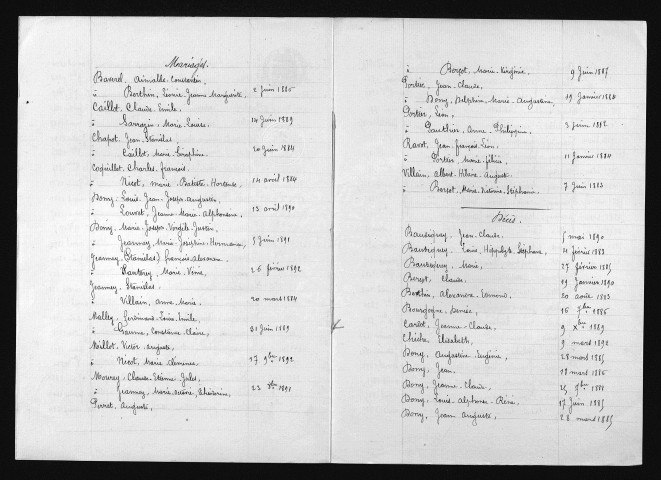 Mariages.
Baverel, Aimable Constantin,
à Berthin, Léonie Jeanne Marguerite, 2 Juin 1885
Caillot, Claude Emile,
à Sarrazin, Marie Louise, 14 Juin 1889
Chapot, Jean Stanislas,
à Caillot, Marie Séraphine, 20 Juin 1884
Coquillot, Charles François,
à Nicot, Marie Batiste Hortense, 14 avril 1884
Bony, Louis Jean Joseph Auguste,
à Louvet, Jeanne Marie Alphonsine, 12 avril 1890
Bony, Marie Joseph Vergile Justin,
à Jeannay, Marie Joséphine Hermance, 5 Juin 1891
Jeannay, (Stanislas) François Alexandre,
à Lanterey, Marie Xénie, 26 février 1892
Jeannay, Stanislas,
à Villain, Anne Marie, 20 mars 1884
Malley, Ferdinand Louis Emile,
à Constance Claire, 31 Juin 1889
Noillot, Victor Auguste,
à Nicot, Marie 17 9bre 1892
Mourey, Claude Etienne Jules,
à Jeannay, Marie 1891
Perret, Auguste,
à Berget, Marie Virginie, 9 Juin 1887
Portier, Jean Claude,
à Bony, Delphine Marie Augustine, 19 Janvier 1884
Portier, Léon,
à Gauthier, Anne Philippine, 3 Juin 1892
Ravot, Jean François Léon,
à Portier, Marie Félicie, 11 Janvier 1884
Villain, Albert Hilaire Auguste,
à Berget, Marie Victoire Stéphanie, 7 Juin 1883
Décès.
Bautiguey, Jean Claude, 5 mai 1890
Bautiguey, Louis Hippolyte Stéphane, 4 février 1883
Bautiguey, Marie, 27 février 1885
Berget, Claude, 19 Janvier 1890
Berthin, Alexandre Edmond, 20 août 1883
Bourgogne, Denise, 16 7bre 1886
Carlot, Jeanne Claude, 9 Xbre 1889
Chiche, Elisabeth, 9 mars 1892
Bony, Augustine Eugénie, 28 mars 1885
Bony, Jean, 18 mars 1886
Bony, Jeanne Claude, 25 7bre 1888
Bony, Louis Alphonse Réné, 17 Juin 1885
Bony, Jean Auguste, 28 mars 1885